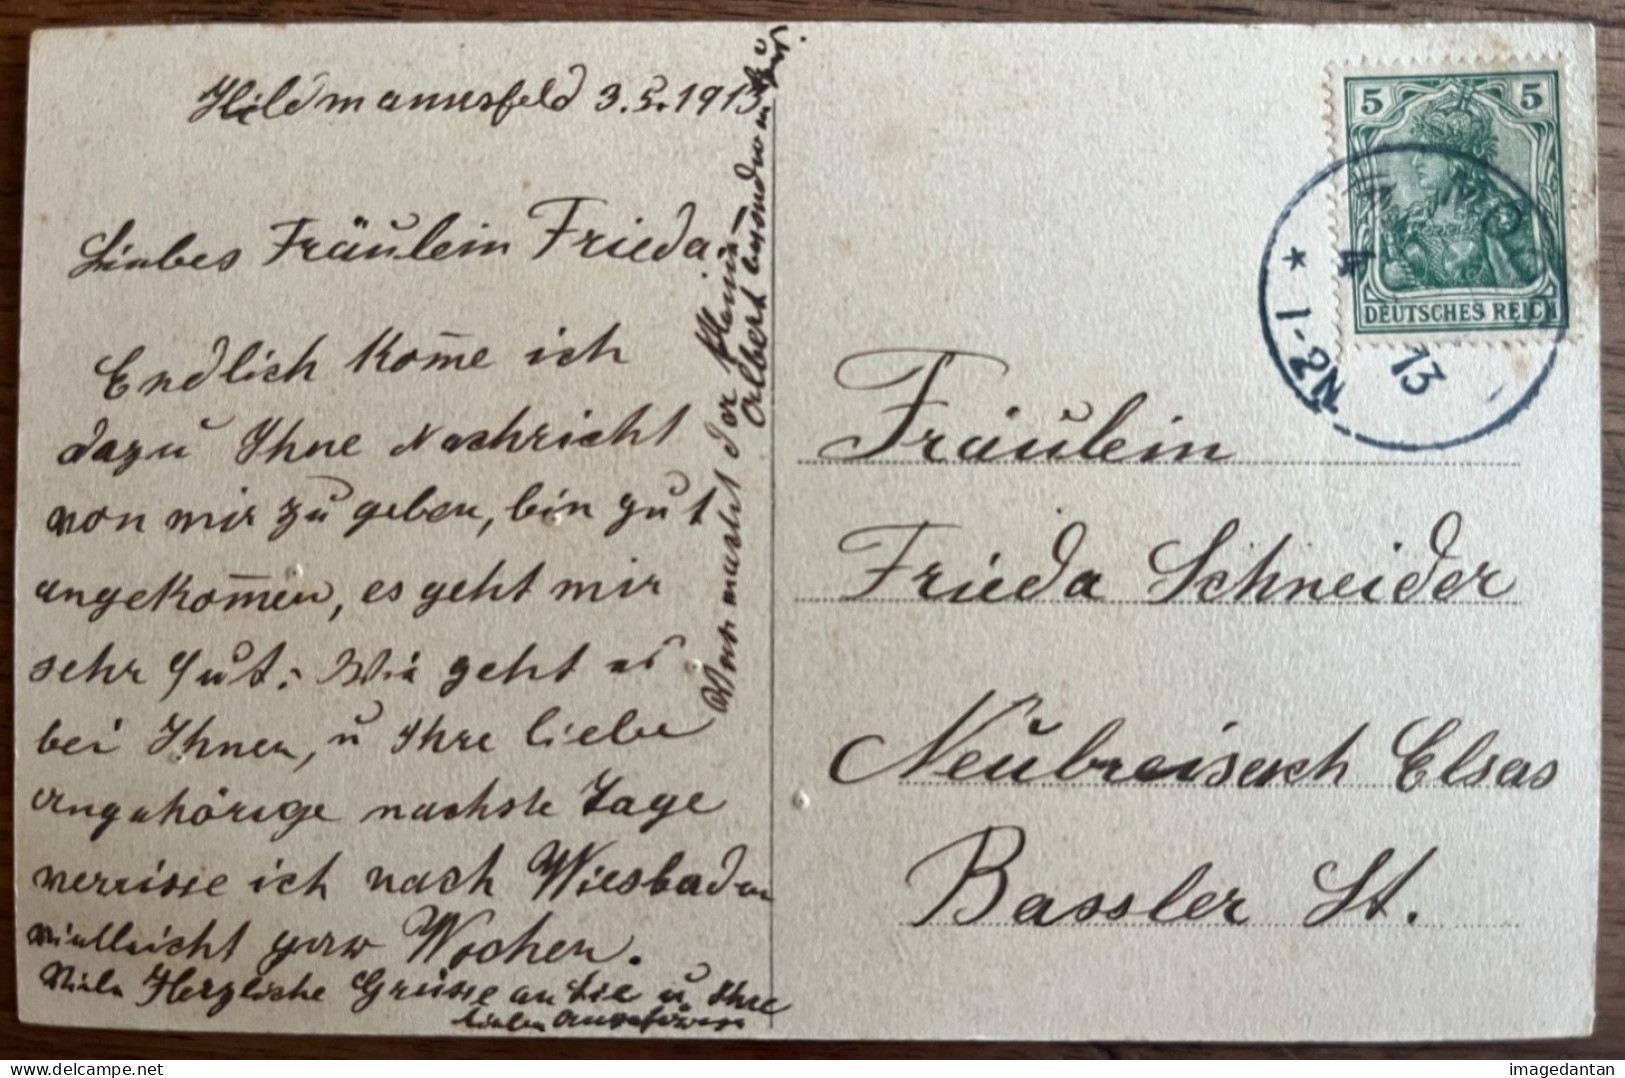 Hildmannsfeld 3.5.1913
Liebes Fräulein Frieda.
Endlich kom̅e ich
dazu Ihne Nachricht
von mir zu geben, bin gut
angekom̅en, es geht mir
sehr gut. Wie geht es
bei Ihnen, u Ihre liebe
Angehörige nachste Tage
verrisse ich nach Wiesbaden
vielleicht paar Wochen.
Viele Herzliche Grüsse an Sie u Ihre
lieben Angehörigen
Was macht der kleine
Albert
Fräulein
Frieda Schneider
Neubreisach Elsas
Bassler St.
5 5
DEUTSCHES REICH
4 13
* 1-2N
imagedantan